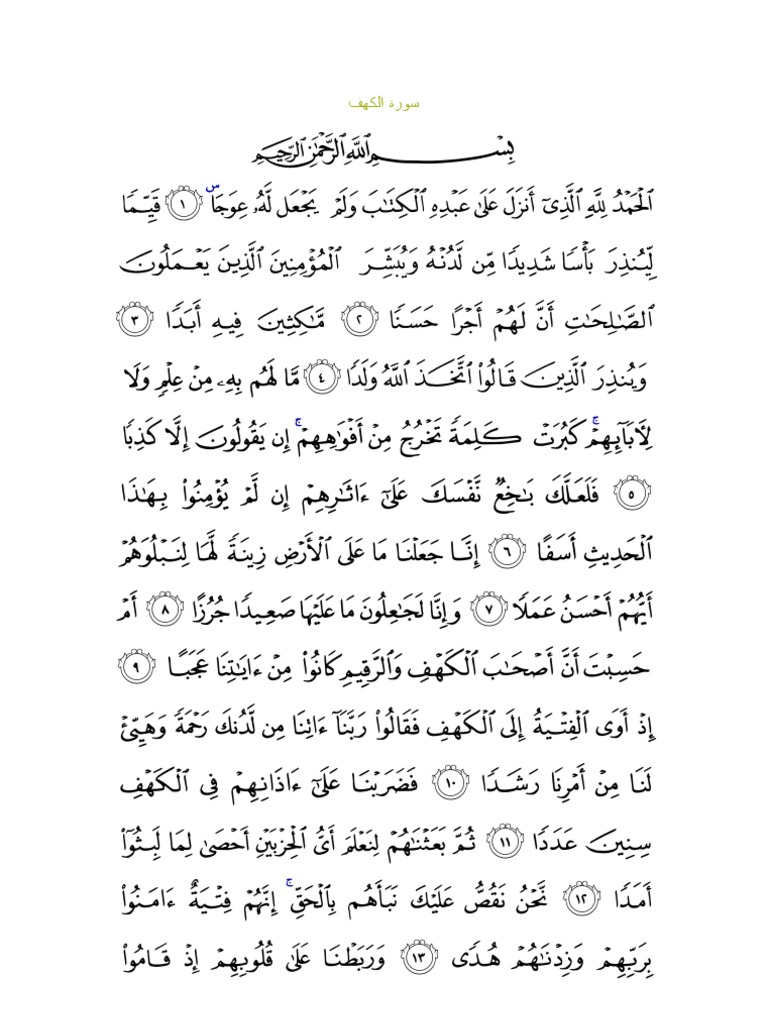 سورة الكهف
بِسْمِ ٱللَّهِ ٱلرَّحْمَٰنِ ٱلرَّحِيمِ
ٱلْحَمْدُ لِلَّهِ ٱلَّذِىٓ أَنزَلَ عَلَىٰ عَبْدِهِ ٱلْكِتَٰبَ وَلَمْ يَجْعَل لَّهُۥ عِوَجَاۜ ١ قَيِّمًا
لِّيُنذِرَ بَأْسًا شَدِيدًا مِّن لَّدُنْهُ وَيُبَشِّرَ ٱلْمُؤْمِنِينَ ٱلَّذِينَ يَعْمَلُونَ
ٱلصَّٰلِحَٰتِ أَنَّ لَهُمْ أَجْرًا حَسَنًا ٢ مَّٰكِثِينَ فِيهِ أَبَدًا ٣
وَيُنذِرَ ٱلَّذِينَ قَالُوا۟ ٱتَّخَذَ ٱللَّهُ وَلَدًا ٤ مَّا لَهُم بِهِۦ مِنْ عِلْمٍ وَلَا
لِـَٔابَآئِهِمْ ۚ كَبُرَتْ كَلِمَةً تَخْرُجُ مِنْ أَفْوَٰهِهِمْ ۚ إِن يَقُولُونَ إِلَّا كَذِبًا
٥ فَلَعَلَّكَ بَٰخِعٌ نَّفْسَكَ عَلَىٰٓ ءَاثَٰرِهِمْ إِن لَّمْ يُؤْمِنُوا۟ بِهَٰذَا
ٱلْحَدِيثِ أَسَفًا ٦ إِنَّا جَعَلْنَا مَا عَلَى ٱلْأَرْضِ زِينَةً لَّهَا لِنَبْلُوَهُمْ
أَيُّهُمْ أَحْسَنُ عَمَلًا ٧ وَإِنَّا لَجَٰعِلُونَ مَا عَلَيْهَا صَعِيدًا جُرُزًا ٨ أَمْ
حَسِبْتَ أَنَّ أَصْحَٰبَ ٱلْكَهْفِ وَٱلرَّقِيمِ كَانُوا۟ مِنْ ءَايَٰتِنَا عَجَبًا ٩
إِذْ أَوَى ٱلْفِتْيَةُ إِلَى ٱلْكَهْفِ فَقَالُوا۟ رَبَّنَآ ءَاتِنَا مِن لَّدُنكَ رَحْمَةً وَهَيِّئْ
لَنَا مِنْ أَمْرِنَا رَشَدًا ١٠ فَضَرَبْنَا عَلَىٰٓ ءَاذَانِهِمْ فِى ٱلْكَهْفِ
سِنِينَ عَدَدًا ١١ ثُمَّ بَعَثْنَٰهُمْ لِنَعْلَمَ أَىُّ ٱلْحِزْبَيْنِ أَحْصَىٰ لِمَا لَبِثُوٓا۟
أَمَدًا ١٢ نَّحْنُ نَقُصُّ عَلَيْكَ نَبَأَهُم بِٱلْحَقِّ ۚ إِنَّهُمْ فِتْيَةٌ ءَامَنُوا۟
بِرَبِّهِمْ وَزِدْنَٰهُمْ هُدًى ١٣ وَرَبَطْنَا عَلَىٰ قُلُوبِهِمْ إِذْ قَامُوا۟